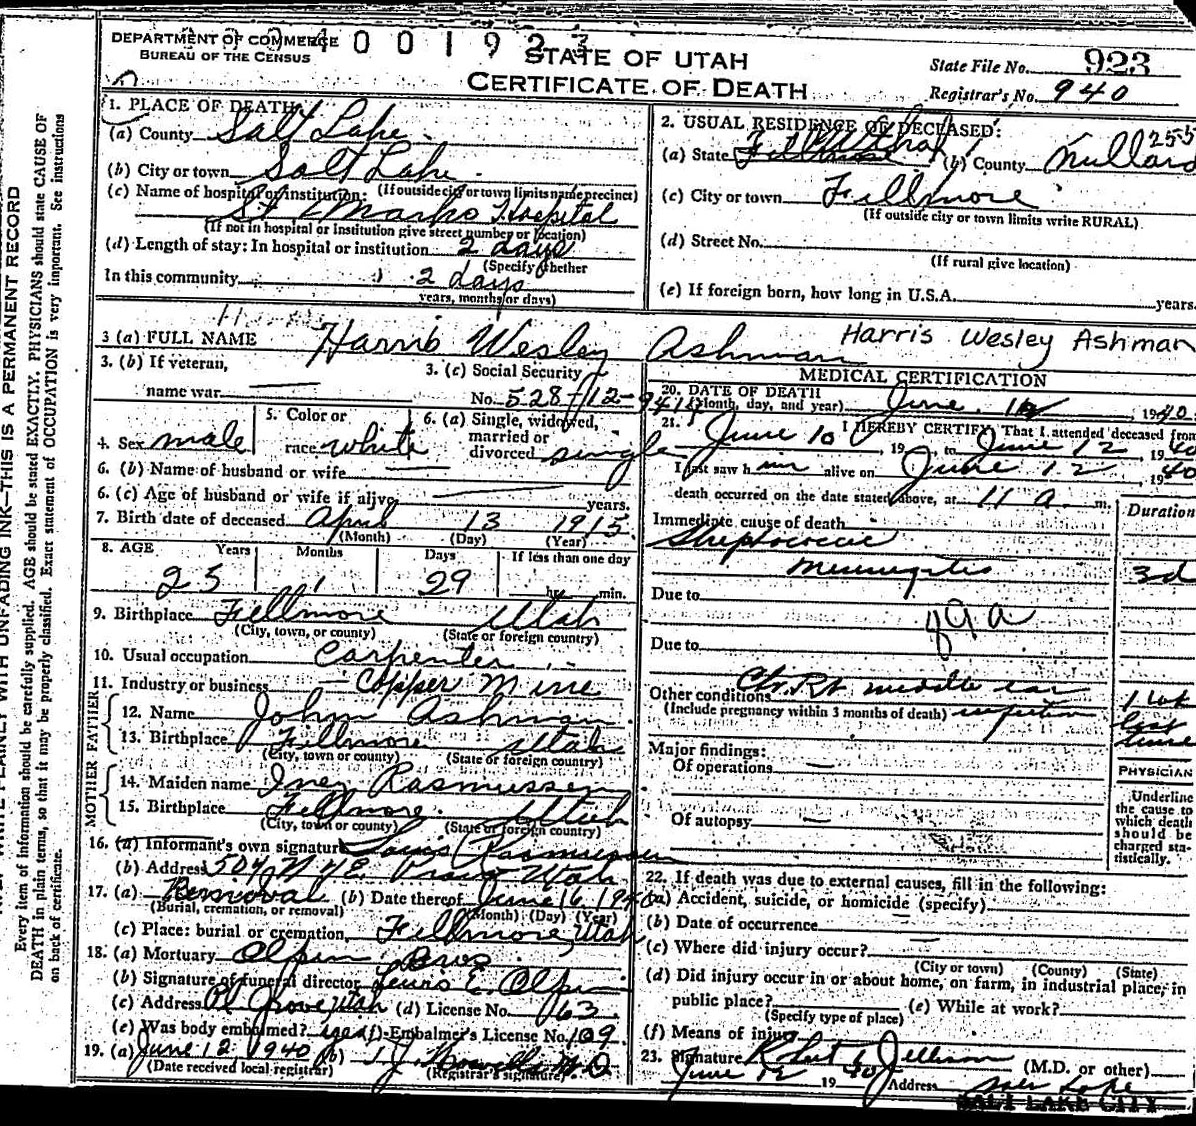 DEPARTMENT OF COMMERCE
BUREAU OF THE CENSUS
4 0 0 1 9 2 3
STATE OF UTAH
CERTIFICATE OF DEATH
State File No. 923
Registrar's No. 940
1. PLACE OF DEATH:
(a) County Salt Lake
(b) City or town Salt Lake
(c) Name of hospital or institution: (If outside city or town limits name precinct)
St Marks Hospital
(If not in hospital or institution give street number or location)
(d) Length of stay: In hospital or institution 2 days
(Specify whether
In this community 2 days
years, months or days)
2. USUAL RESIDENCE OF DECEASED:
(a) State Utah (b) County Millard
(c) City or town Fillmore
(If outside city or town limits write RURAL)
(d) Street No.
(If rural give location)
(e) If foreign born, how long in U.S.A. years.
3 (a) FULL NAME Harris Wesley Ashman Harris Wesley Ashman
3. (b) If veteran,
name war
3. (c) Social Security
No. 528-12-9419
4. Sex male
5. Color or
race white
6. (a) Single, widowed,
married or
divorced single
6. (b) Name of husband or wife
6. (c) Age of husband or wife if alive years.
7. Birth date of deceased April 13 1915
(Month) (Day) (Year)
8. AGE Years Months Days If less than one day
25 1 29 hr. min.
9. Birthplace Fillmore Utah
(City, town, or county) (State or foreign country)
10. Usual occupation Carpenter
11. Industry or business Copper Mine
FATHER
12. Name John Ashman
13. Birthplace Fillmore Utah
(City, town or county) (State or foreign country)
MOTHER
14. Maiden name Inez Rasmussen
15. Birthplace Fillmore Utah
(City, town or county) (State or foreign country)
16. (a) Informant's own signature Rasmussen
(b) Address 504 N 4 E. Provo Utah
17. (a) Removal (b) Date thereof June 16 1940
(Burial, cremation, or removal) (Month) (Day) (Year)
(c) Place: burial or cremation, Fillmore, Utah
18. (a) Mortuary Olpin Bros
(b) Signature of funeral director Lewis E. Olpin
(c) Address Pl Grove Utah (d) License No. 63
(e) Was body embalmed? yes (f) Embalmer's License No. 109
19. (a) June 12, 1940 (b) M D
(Date received local registrar) (Registrar's signature)
MEDICAL CERTIFICATION
20. DATE OF DEATH
(Month, day, and year) June 12, 1940
21. I HEREBY CERTIFY That I attended deceased from
June 10, 19 , to June 12, 1940
I last saw him alive on June 12 1940
death occurred on the date stated above, at 11 a. m.
Duration
Immediate cause of death
Streptococcic
Meningitis 3d
Due to
Due to
Other conditions Ch. Rt middle ear
(Include pregnancy within 3 months of death) infection
Major findings:
Of operations
Of autopsy
PHYSICIAN
Underline
the cause to
which death
should be
charged sta-
tistically.
22. If death was due to external causes, fill in the following:
(a) Accident, suicide, or homicide (specify)
(b) Date of occurrence
(c) Where did injury occur?
(City or town) (County) (State)
(d) Did injury occur in or about home, on farm, in industrial place, in
public place? (e) While at work?
(Specify type of place)
(f) Means of injury
23. Signature Robert Jellison (M.D. or other)
June 12 1940 Address Salt Lake
SALT LAKE CITY
WRITE PLAINLY WITH UNFADING INK—THIS IS A PERMANENT RECORD
Every item of information should be carefully supplied. AGE should be stated EXACTLY. PHYSICIANS should state CAUSE OF
DEATH in plain terms, so that it may be properly classified. Exact statement of OCCUPATION is very important. See instructions
on back of certificate.